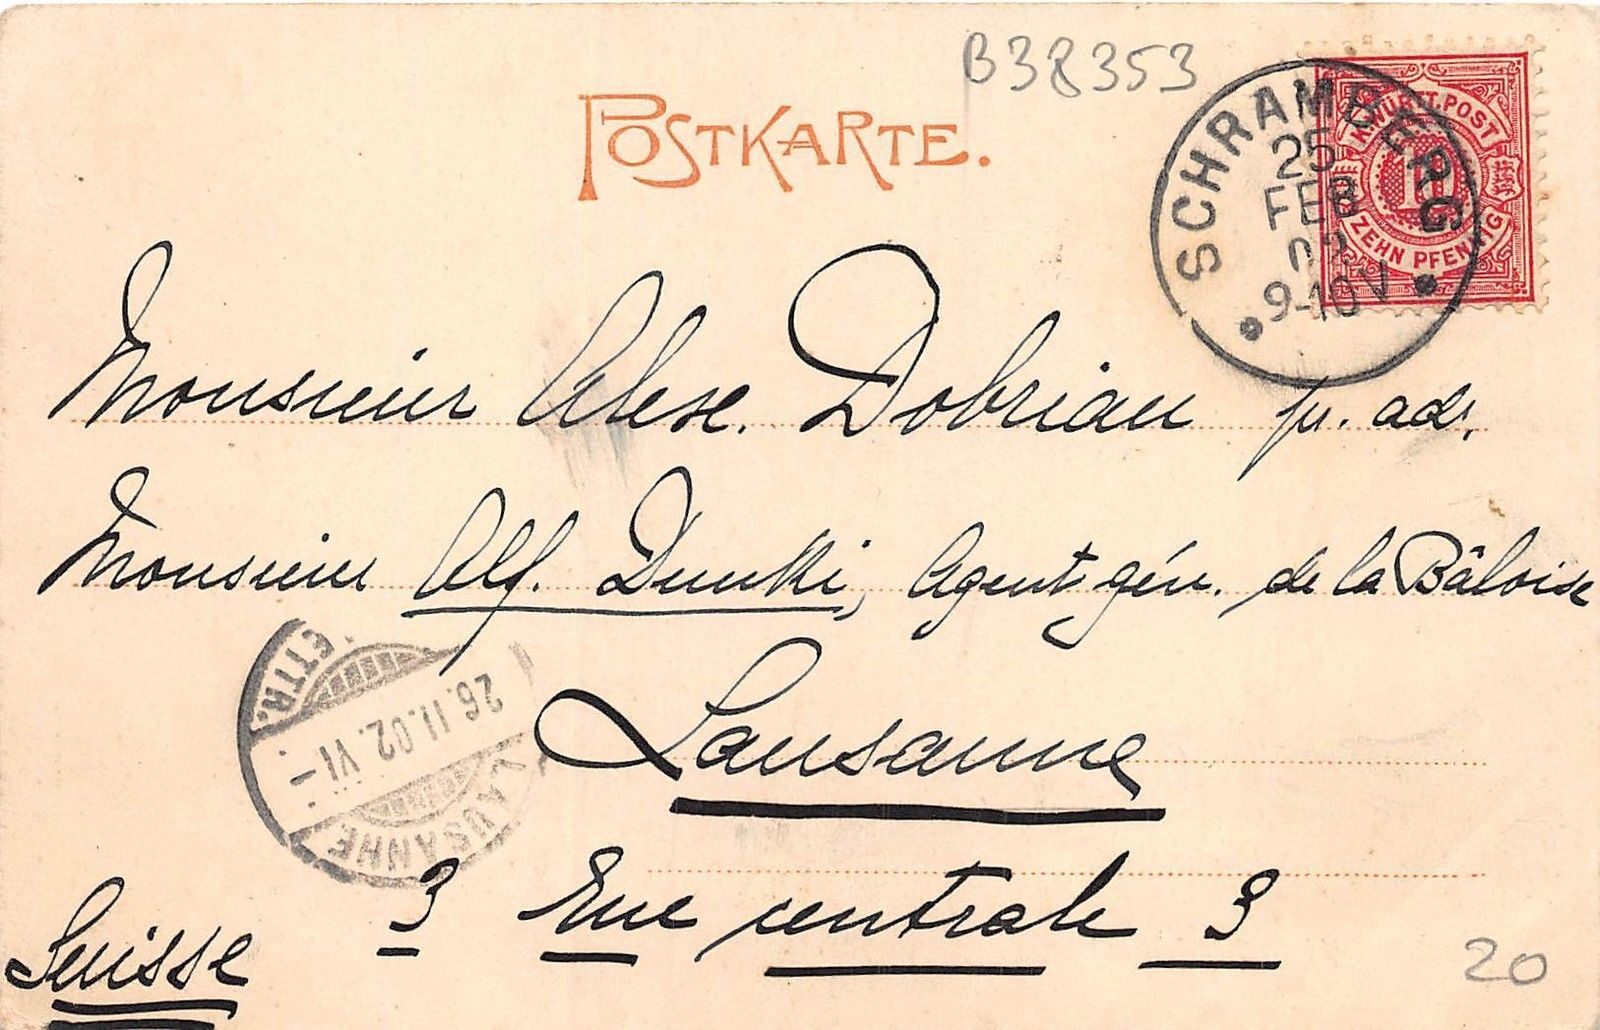 B38353
POSTKARTE.
K.WÜRTT.POST
10
ZEHN PFENNIG
SCHRAMBERG
25
FEB
02
9-10V
Monsieur Alex. Dobriau pr. adr.
Monsieur Alf. Dunki, Agent gén. de la Bâloise
Lausanne
3 Rue centrale 3
Suisse
LAUSANNE
26.II.02.VI-
LETTR.
20